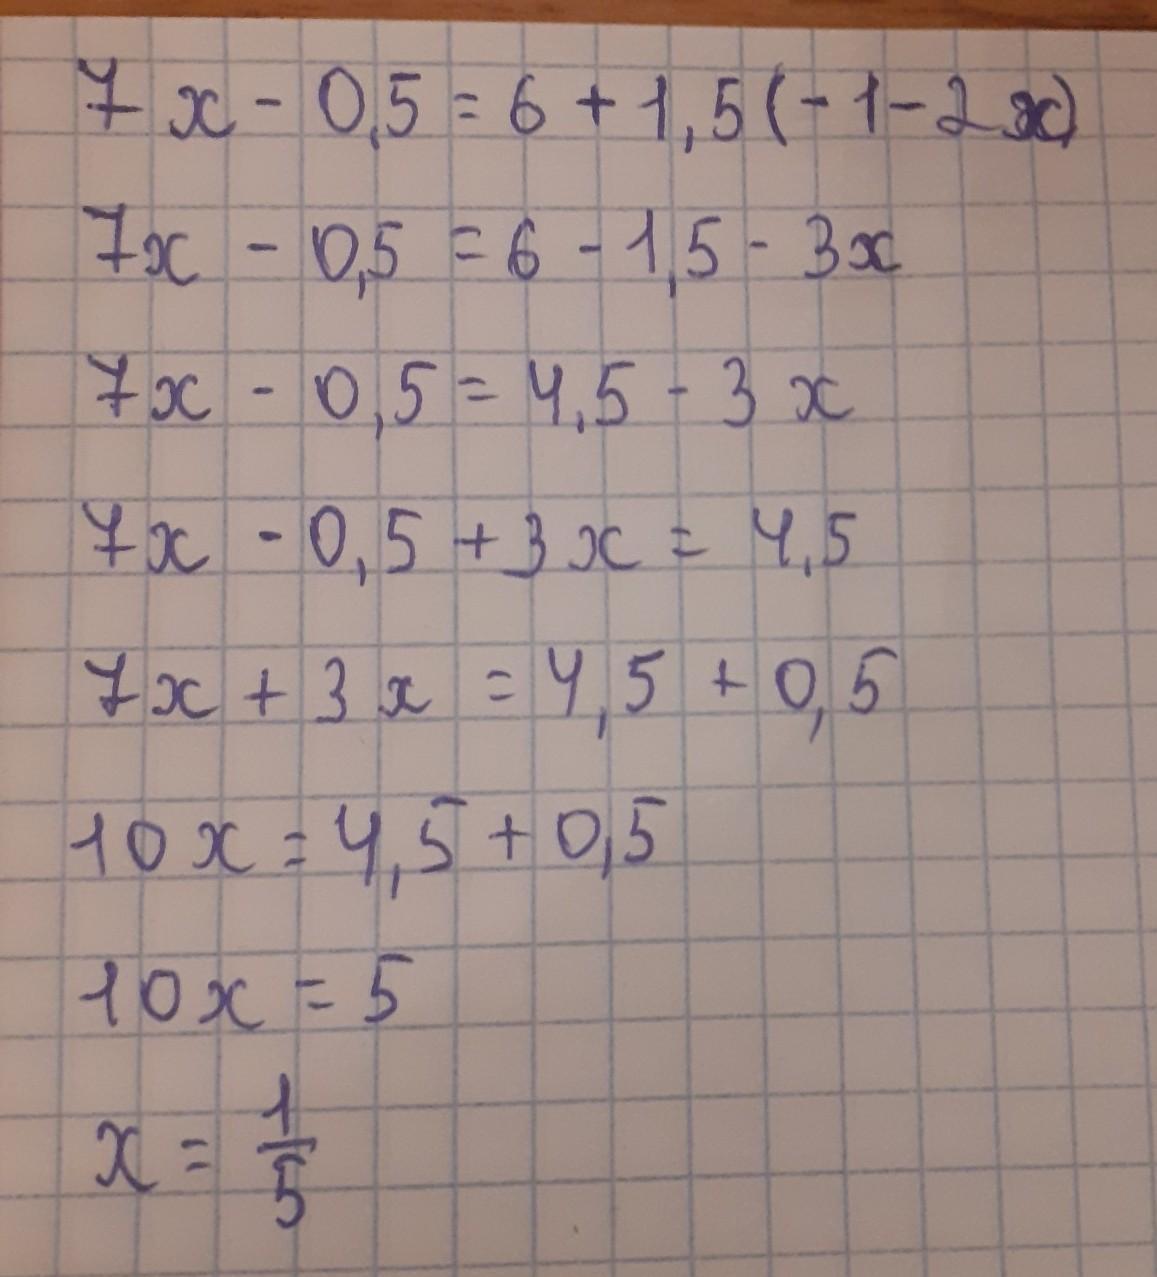 7x - 0,5 = 6 + 1,5(-1-2x)
7x - 0,5 = 6 - 1,5 - 3x
7x - 0,5 = 4,5 - 3x
7x - 0,5 + 3x = 4,5
7x + 3x = 4,5 + 0,5
10x = 4,5 + 0,5
10x = 5
x = 1/5